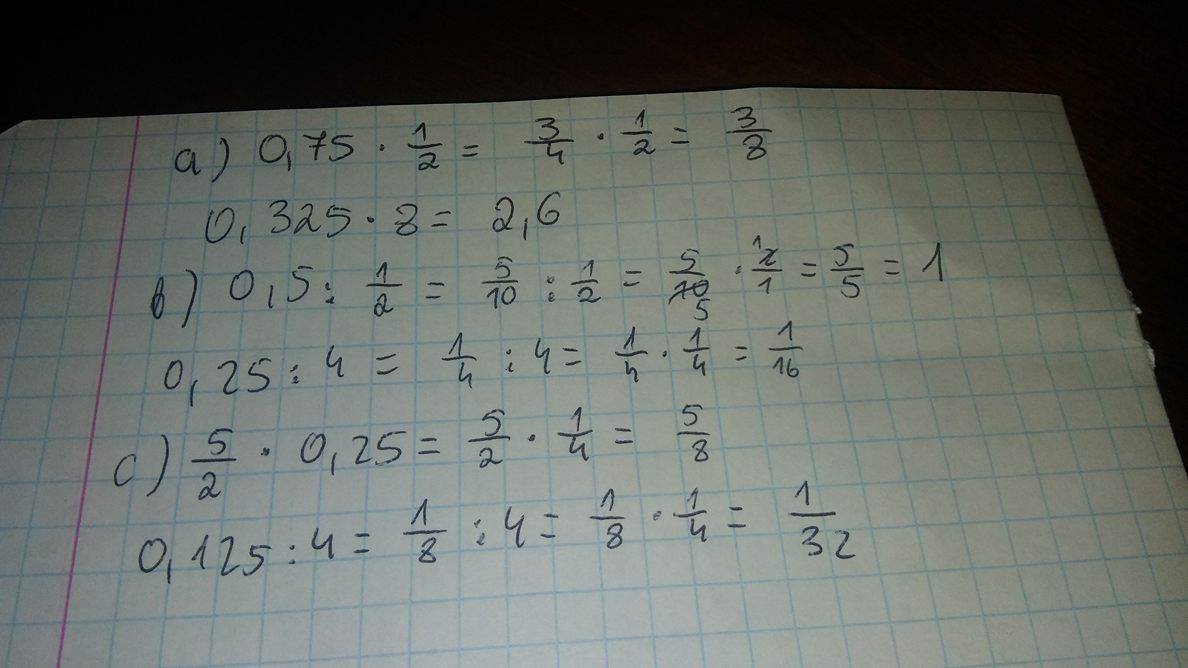 a) 0,75 · 1/2 = 3/4 · 1/2 = 3/8
0,325 · 8 = 2,6
b) 0,5 : 1/2 = 5/10 : 1/2 = 5/10 5 · 1 2/1 = 5/5 = 1
0,25 : 4 = 1/4 : 4 = 1/4 · 1/4 = 1/16
c) 5/2 · 0,25 = 5/2 · 1/4 = 5/8
0,125 : 4 = 1/8 : 4 = 1/8 · 1/4 = 1/32